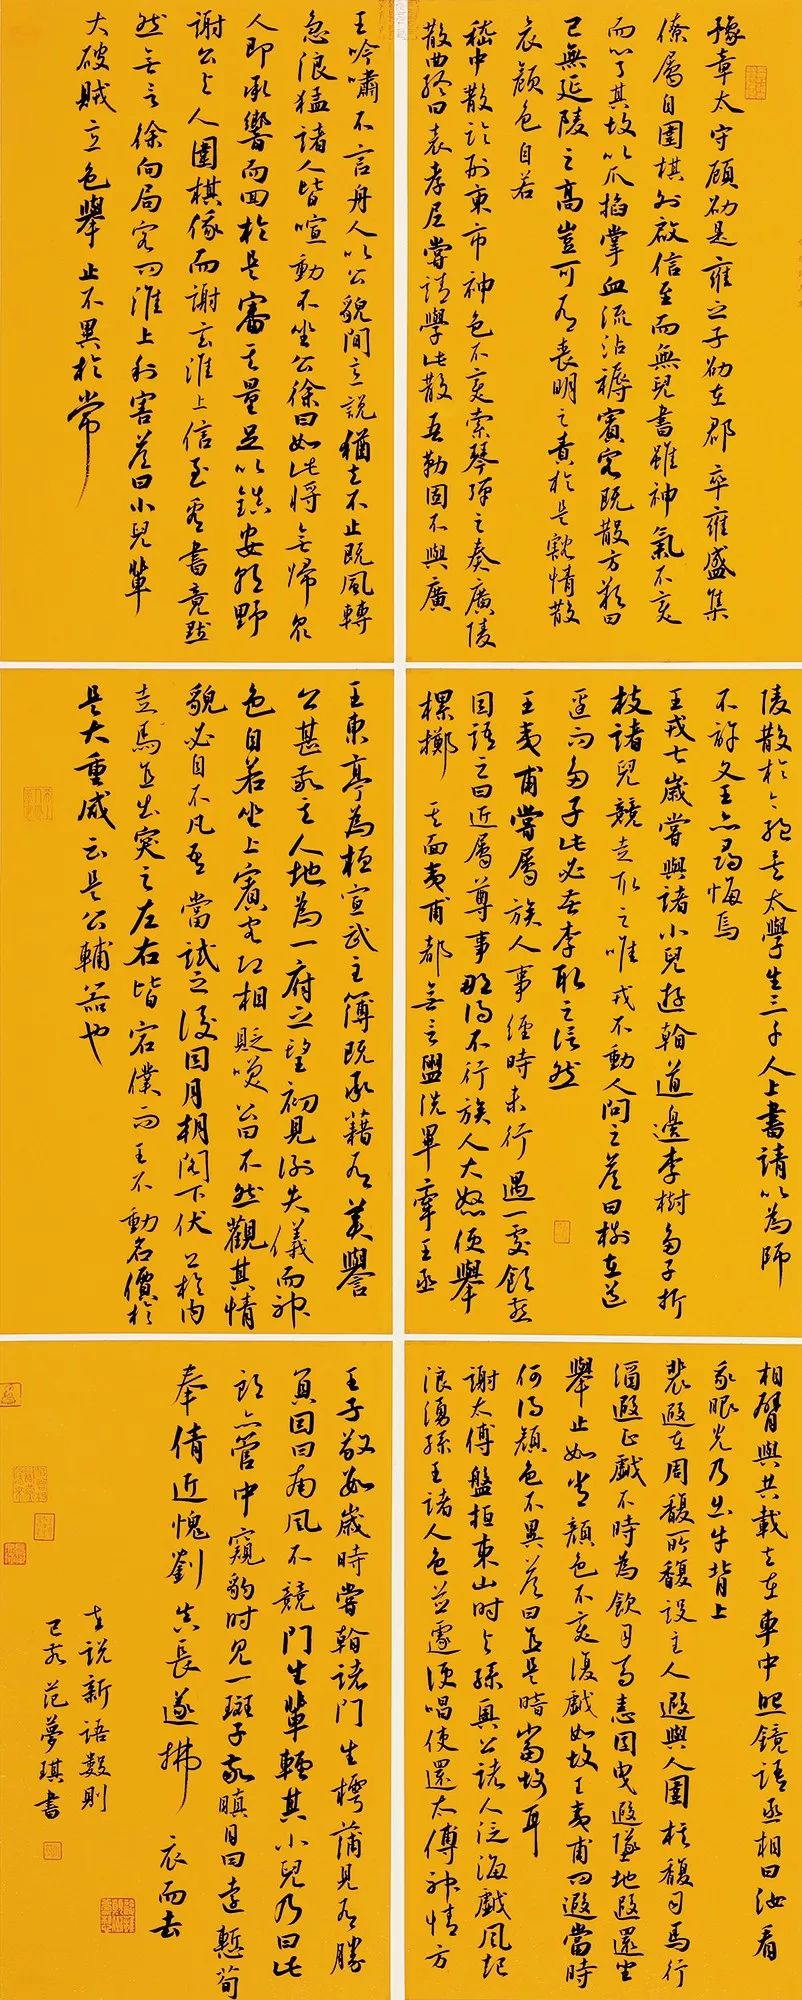 豫章太守顧劭是雍之子劭在郡卒雍盛集
僚屬自圍棋外啟信至而無兒書雖神氣不變
而心了其故以爪掐掌血流沾褥賓客既散方歎曰
已無延陵之高豈可有喪明之責於是豁情散
哀顏色自若
嵇中散臨刑東市神色不變索琴彈之奏廣陵
散曲終曰袁孝尼嘗請學此散吾靳固不與廣
陵散於今絕矣太學生三千人上書請以為師
不許文王亦尋悔焉
王戎七歲嘗與諸小兒遊看道邊李樹多子折
枝諸兒競走取之唯戎不動人問之答曰樹在道
邊而多子此必苦李取之信然
王夷甫嘗屬族人事經時未行遇一處飲燕
因語之曰近屬尊事那得不行族人大怒便舉
樏擲其面夷甫都無言盥洗畢牽王丞
相臂與共載去在車中照鏡語丞相曰汝看
我眼光乃出牛背上
裴遐在周馥所馥設主人遐與人圍棋馥司馬行
酒遐正戲不時為飲司馬恚因曳遐墜地遐還坐
舉止如常顏色不變復戲如故王夷甫問遐當時
何得顏色不異答曰直是暗當故耳
謝太傅盤桓東山時與孫興公諸人泛海戲風起
浪湧孫王諸人色並遽便唱使還太傅神情方
王吟嘯不言舟人以公貌閒意說猶去不止既風轉
急浪猛諸人皆喧動不坐公徐曰如此將無歸眾
人即承響而回於是審其量足以鎮安朝野
謝公與人圍棋俄而謝玄淮上信至看書竟默
然無言徐向局客問淮上利害答曰小兒輩
大破賊意色舉止不異於常
王東亭為桓宣武主簿既承藉有美譽
公甚敬其人地為一府之望初見謝失儀而神
色自若坐上賓客即相貶笑公曰不然觀其情
貌必自不凡吾當試之後因月朝閣下伏公於內
走馬直出突之左右皆宕僕而王不動名價於
是大重咸云是公輔器也
王子敬數歲時嘗看諸門生樗蒲見有勝
負因曰南風不競門生輩輕其小兒乃曰此
郎亦管中窺豹時見一斑子敬瞋目曰遠慚荀
奉倩近愧劉真長遂拂衣而去
世說新語數則
己亥范夢琪書